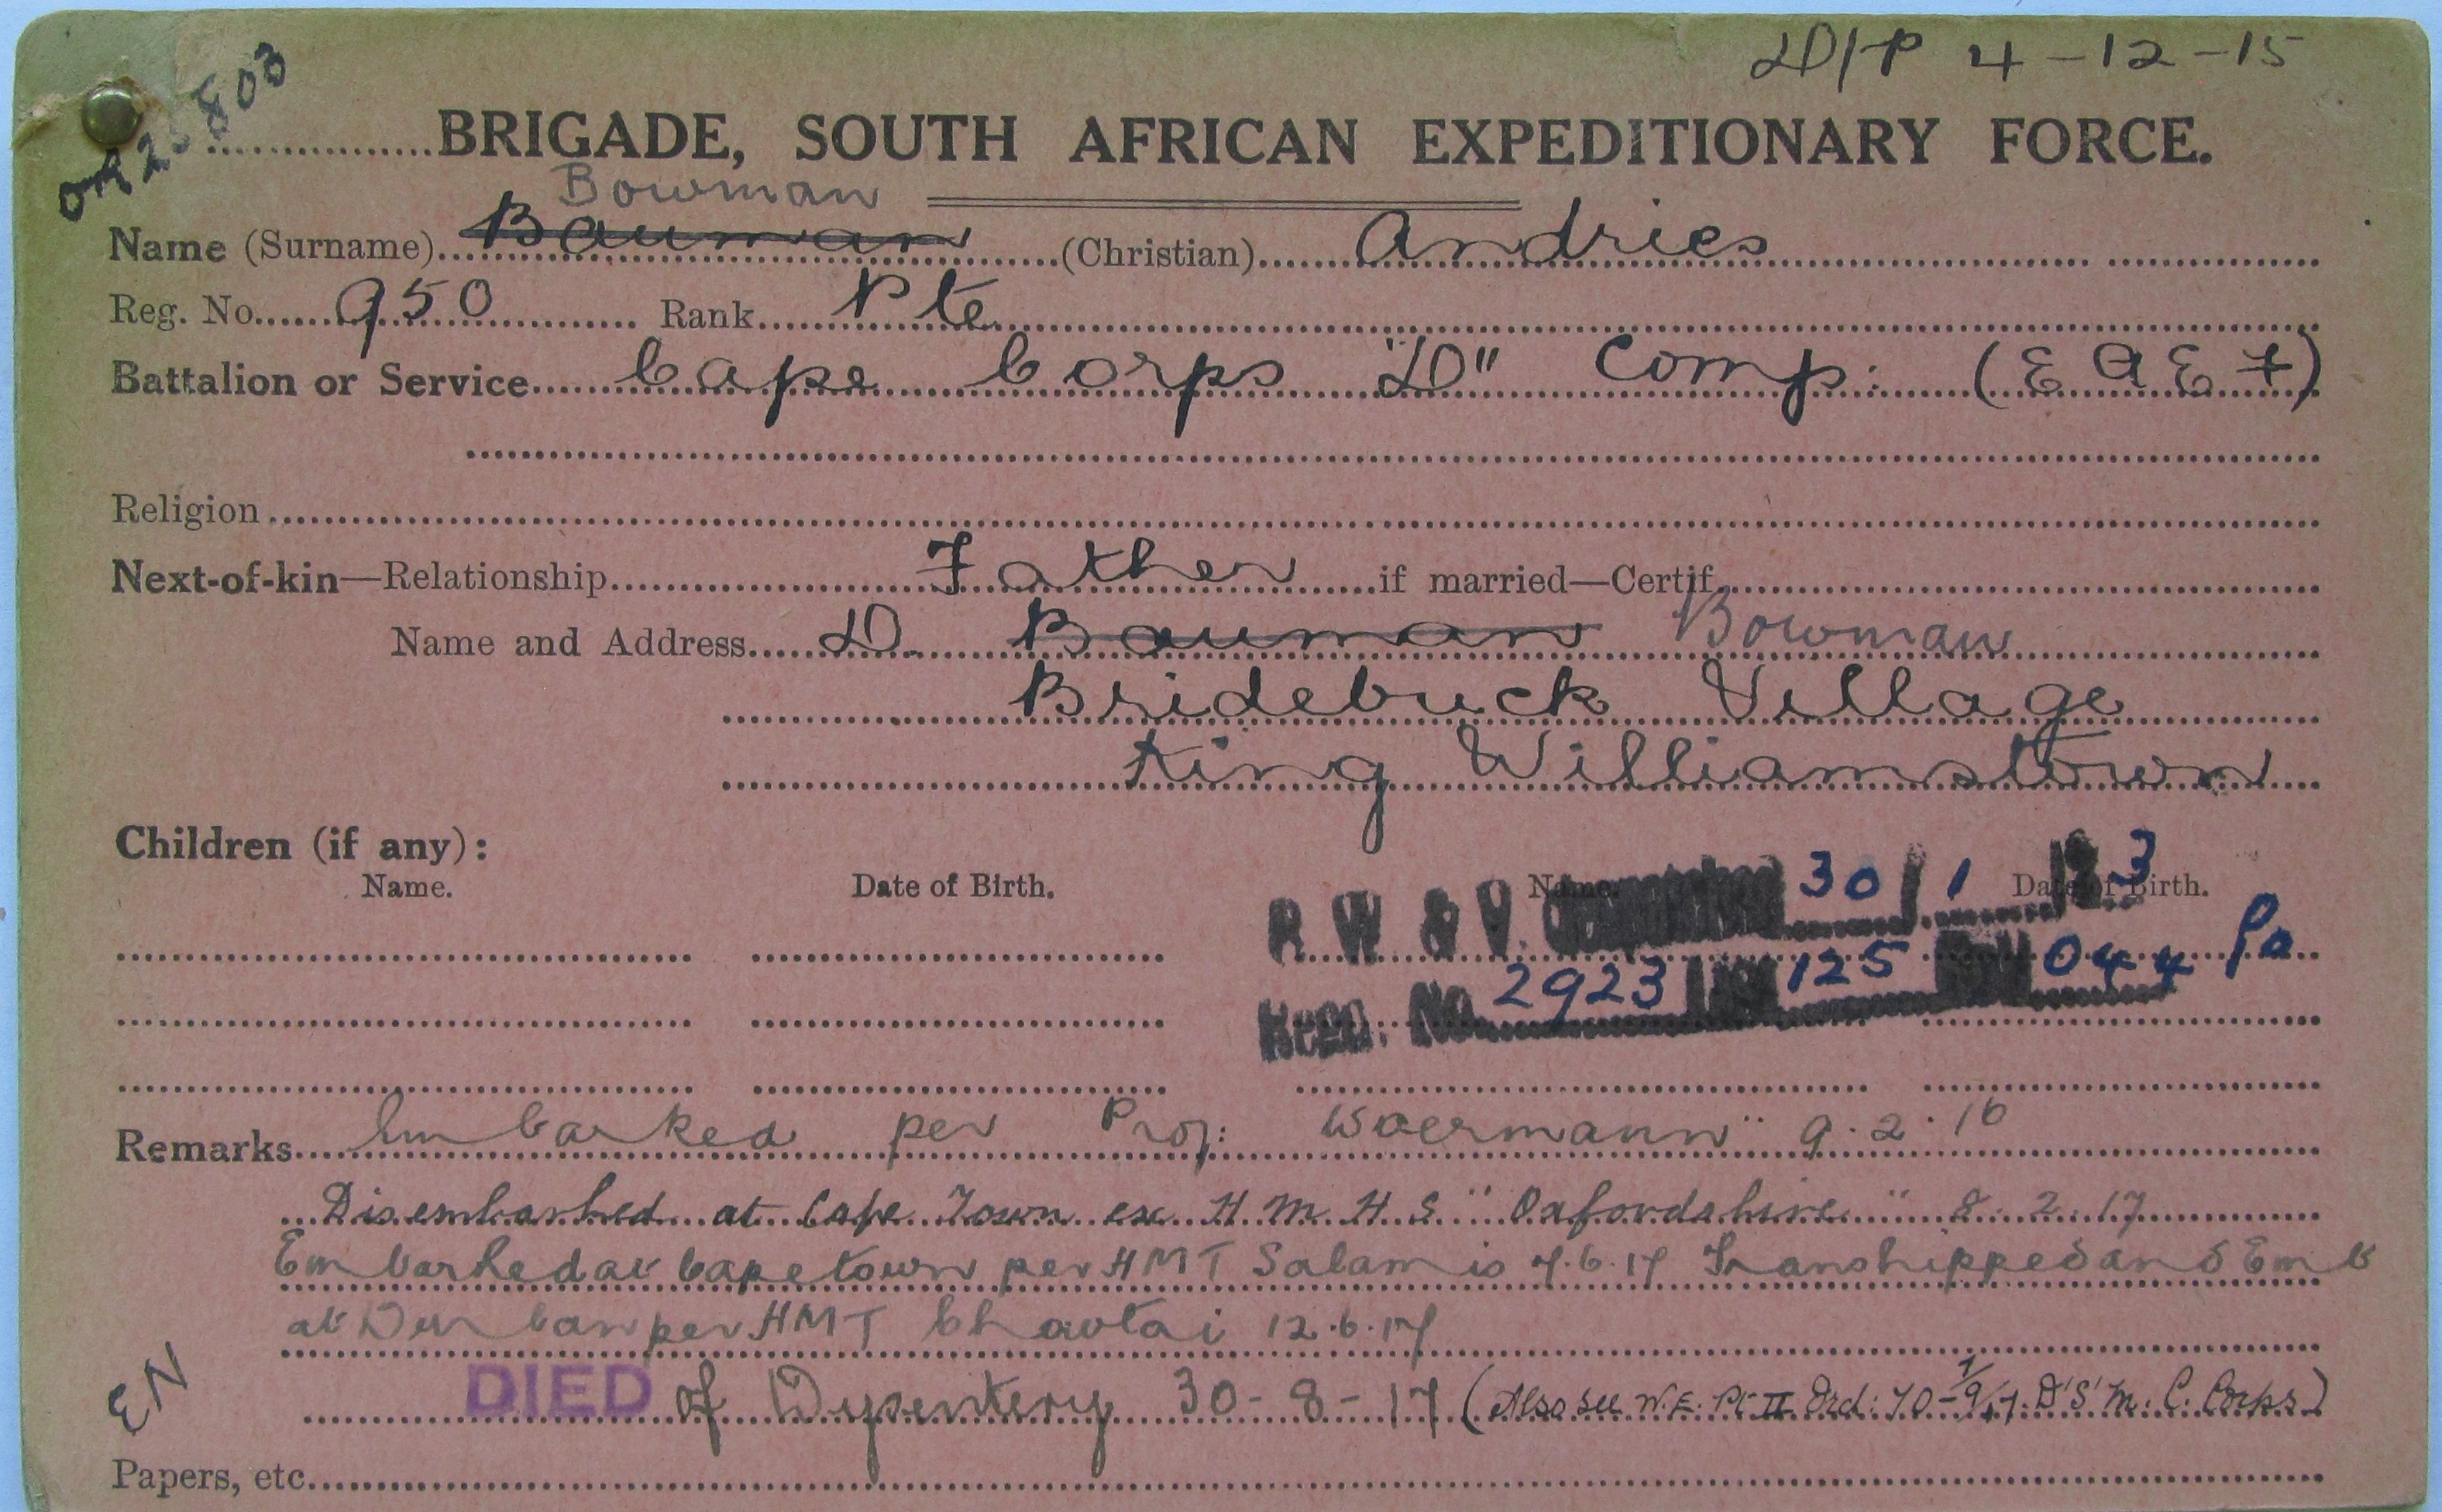 D/P 4-12-15
OR 25803
BRIGADE, SOUTH AFRICAN EXPEDITIONARY FORCE.
Bowman
Name (Surname) Bauman (Christian) Andries
Reg. No. 950 Rank Pte
Battalion or Service Cape Corps "D" Comp: (E A E F)
Religion
Next-of-kin—Relationship Father if married—Certif.
Name and Address D. Bauman Bowman
Bridebuck Village
King Williamstown
Children (if any):
Name. Date of Birth. Name. Date of Birth.
R. W & V. 30/1 3
Reqn. No. 2923 125 044 Pa
Remarks Embarked per Prof: Woermann" 9.2.16
Disembarked at Cape Town ex H.M.H.S "Oxfordshire" 8.2.17
Embarked at Capetown per HMT Salamis 7.6.17 Transhipped and Emb
at Durban per HMT Chaotai 12.6.17
EN
DIED of Dysentery 30-8-17 (Also see W.E. Pt II Ord: 70-1/9/17. D'S'M. C. Corps)
Papers, etc.